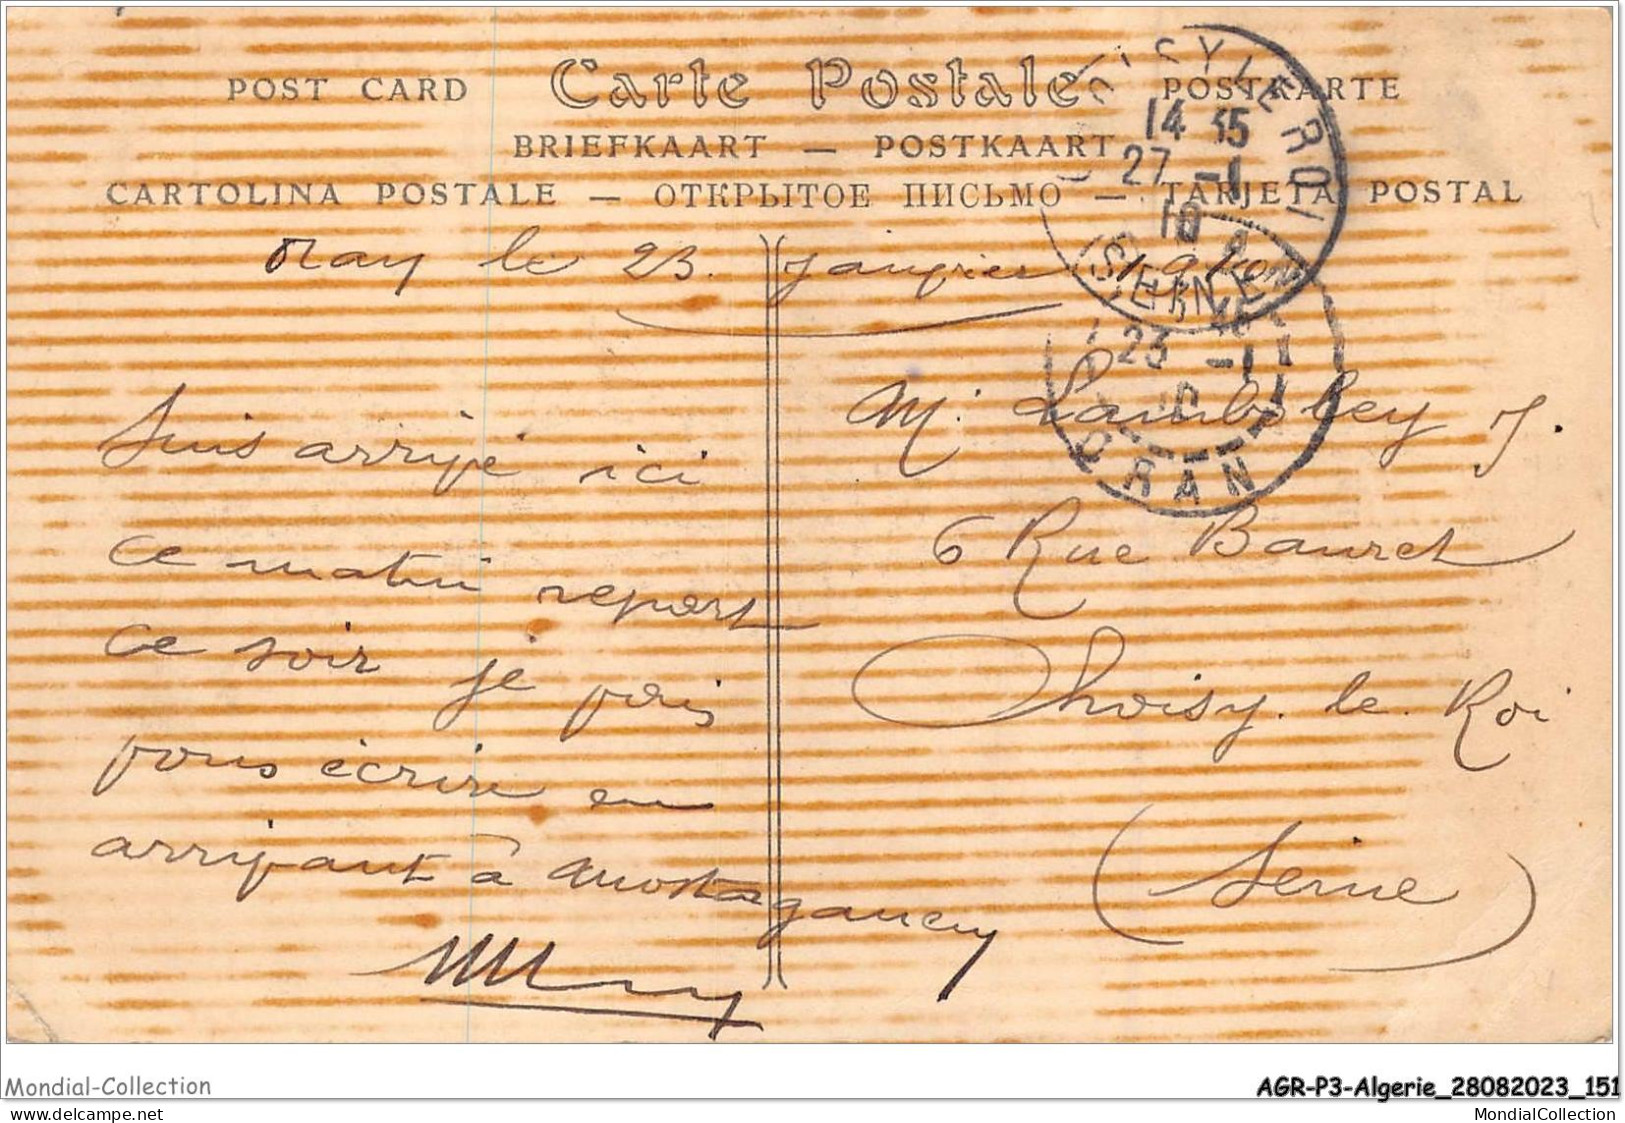 POST CARD Carte Postale POSTKARTE
BRIEFKAART — POSTKAART
CARTOLINA POSTALE — ОТКРЫТОЕ ПИСЬМО — TARJETA POSTAL
CHOISY LE ROI
14 35
27 -1
10
(SEINE)
Oran le 23 janvier 1910
23 -1
10
ORAN
Suis arrivé ici
ce matin repart
ce soir je vais
vous écrire en
arrivant à Mostaganem
M. J.
6 Rue Bauret
Choisy. le. Roi
(Seine)
Mondial-Collection
delcampe.net
AGR-P3-Algerie_28082023_151
MondialCollection